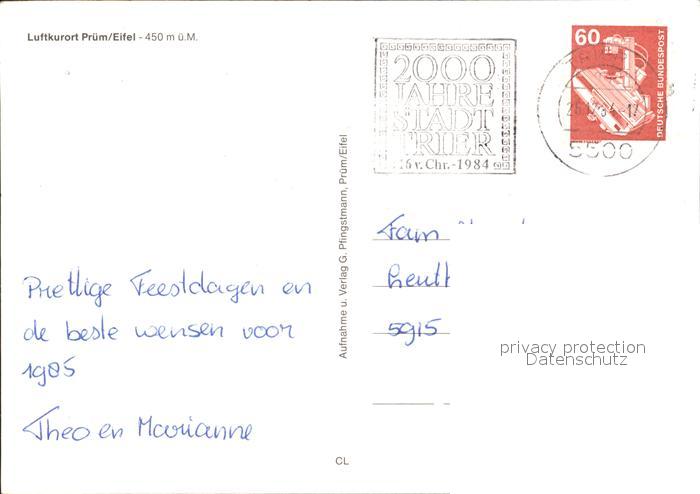 Luftkurort Prüm/Eifel - 450 m ü.M.
2000
JAHRE
STADT
TRIER
16 v. Chr.-1984
60
DEUTSCHE BUNDESPOST
5500
Aufnahme u. Verlag G. Pfingstmann, Prüm/Eifel
Prettige Feestdagen en
de beste wensen voor
1985
Theo en Marianne
Fam
5915
privacy protection
Datenschutz
CL